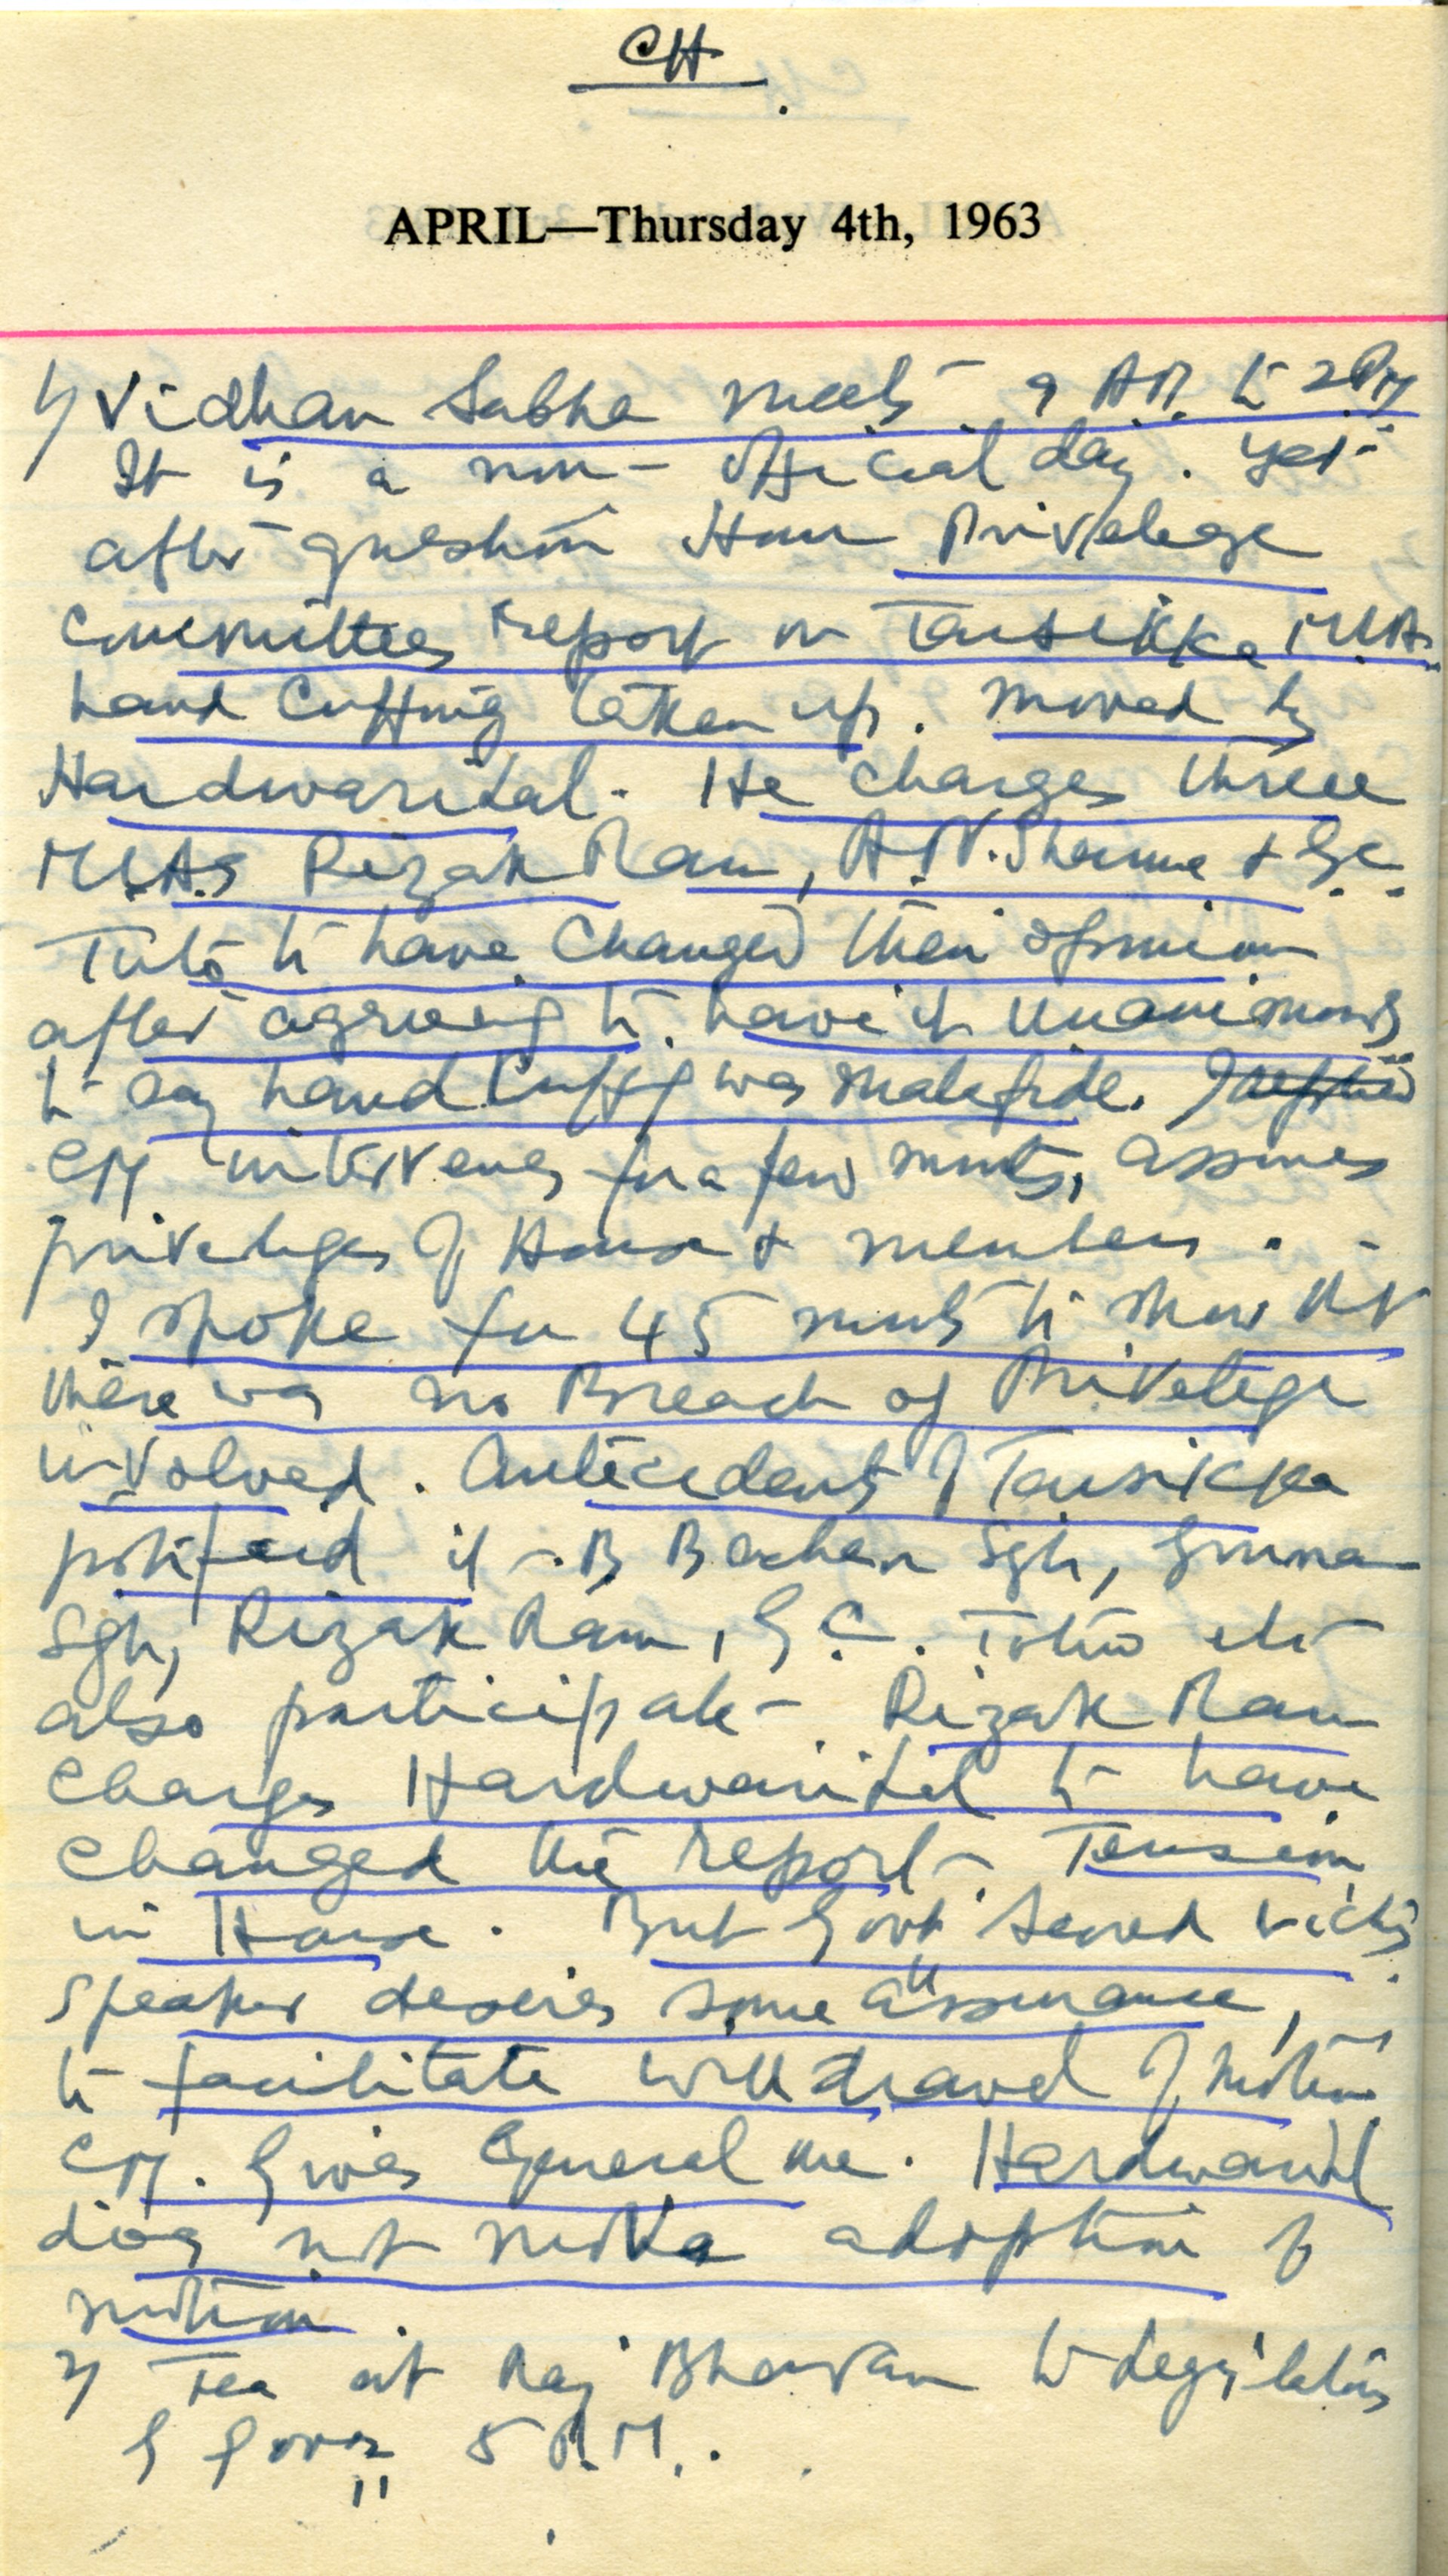 CH.
APRIL—Thursday 4th, 1963
1) Vidhan Sabha meets 9 AM. to 2 PM
It is a non-official day. Yet
after question Hour Privelege
Committees report on Tarsikka MLA.
hand Cuffing taken up. Moved by
Hardwarilal. He charges three
MLAs Rizak Ram, A.N. Sharma & G.C.
to have changed their opinion
after agreeing to have it unanimously
to say hand Cuffg was malafide.
CM intervenes for a few mnts, assures
priveleges of House & members.
I spoke for 45 mnts to show that
there was no Breach of Privelege
involved. Antecedents of Tarsikka
it. B Bachan Sgh, Gurnam
Sgh, Rizak Ram, G.C. etc
also participate. Rizak Ram
charges Hardwarilal to have
changed the report. Tension
in House. But Govt
Speaker desires some assurance,
to facilitate withdrawal of motion
CM. Gives General one. Hardwarilal
does not move adoption of
motion.
2) Tea at Raj Bhawan to Legislators
by Govr 5 P.M.